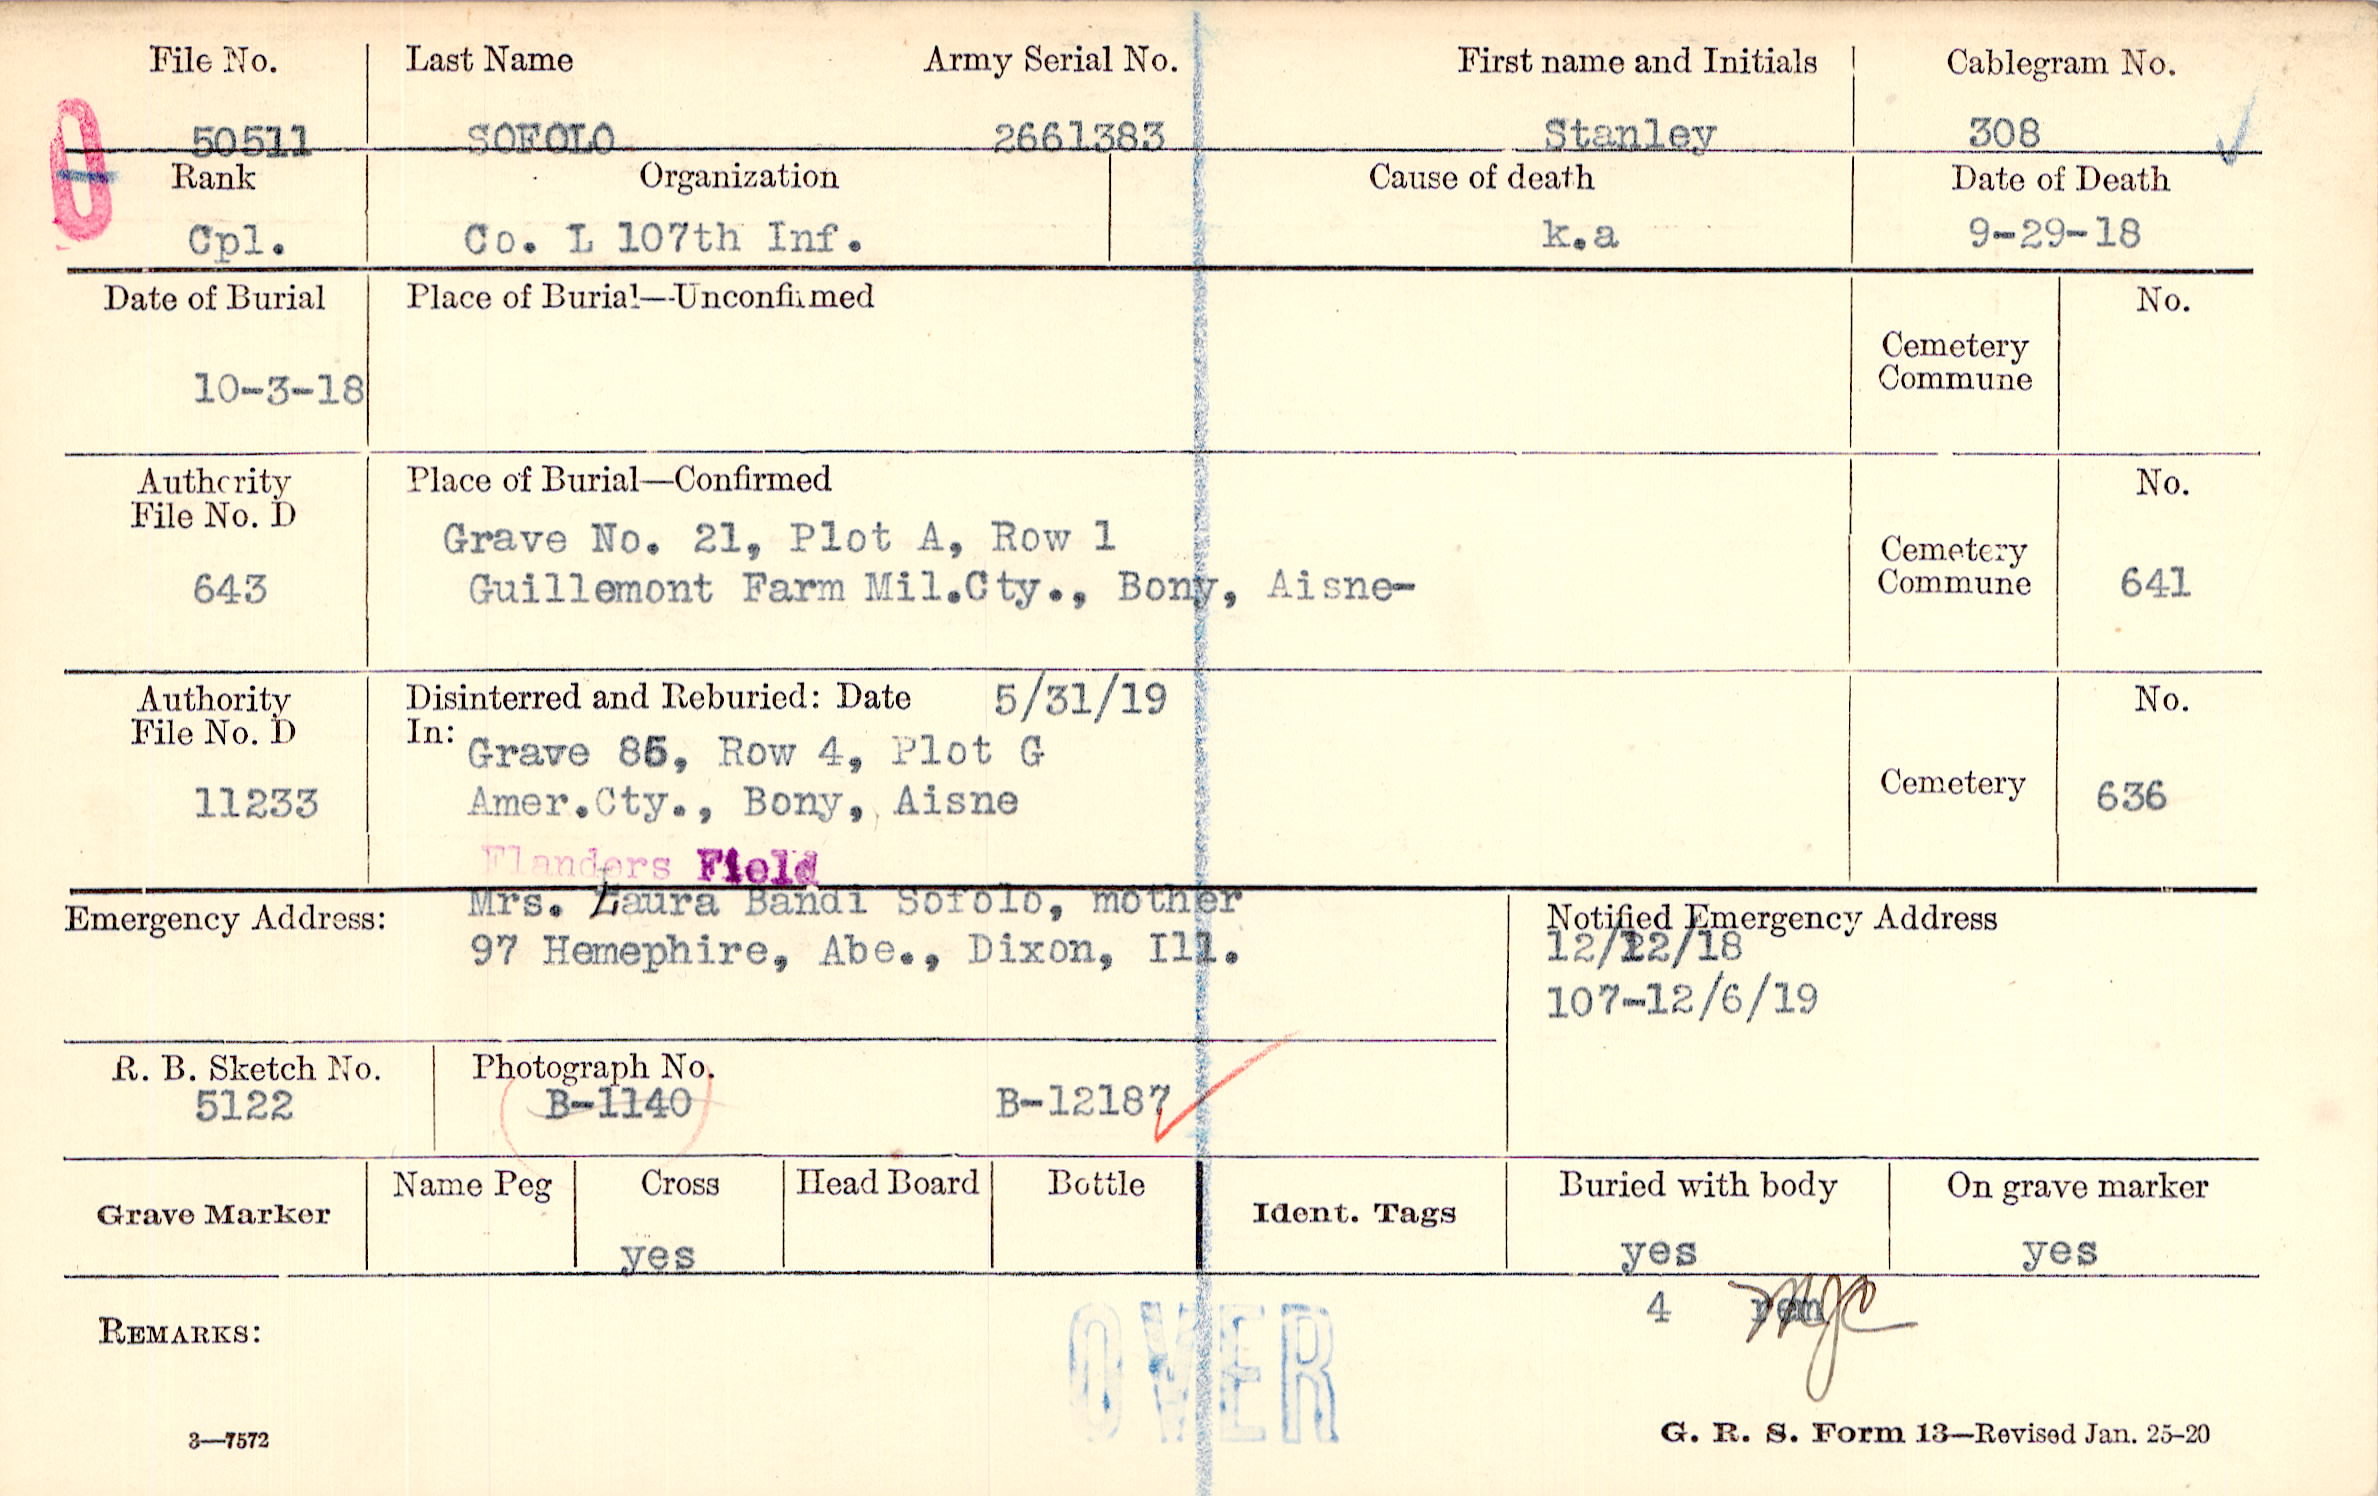 File No. Last Name Army Serial No. First name and Initials Cablegram No.
50511 SOFOLO 2661383 Stanley 308
Rank Organization Cause of death Date of Death
Cpl. Co. L 107th Inf. k.a 9-29-18
Date of Burial Place of Burial—Unconfirmed No.
Cemetery
Commune
10-3-18
Authority Place of Burial—Confirmed No.
File No. D
Grave No. 21, Plot A, Row 1
Cemetery
643 Guillemont Farm Mil.Cty., Bony, Aisne- Commune 641
Authority Disinterred and Reburied: Date 5/31/19 No.
File No. D In:
Grave 85, Row 4, Plot G
11233 Amer.Cty., Bony, Aisne Cemetery 636
Flanders Field
Emergency Address: Mrs. Laura Bandi Sofolo, mother Notified Emergency Address
97 Hemephire, Abe., Dixon, Ill. 12/12/18
107-12/6/19
R. B. Sketch No. Photograph No.
5122 B-1140 B-12187
Grave Marker Name Peg Cross Head Board Bottle Ident. Tags Buried with body On grave marker
yes yes yes
4
REMARKS:
OVER
3—7572 G. R. S. Form 13—Revised Jan. 25-20